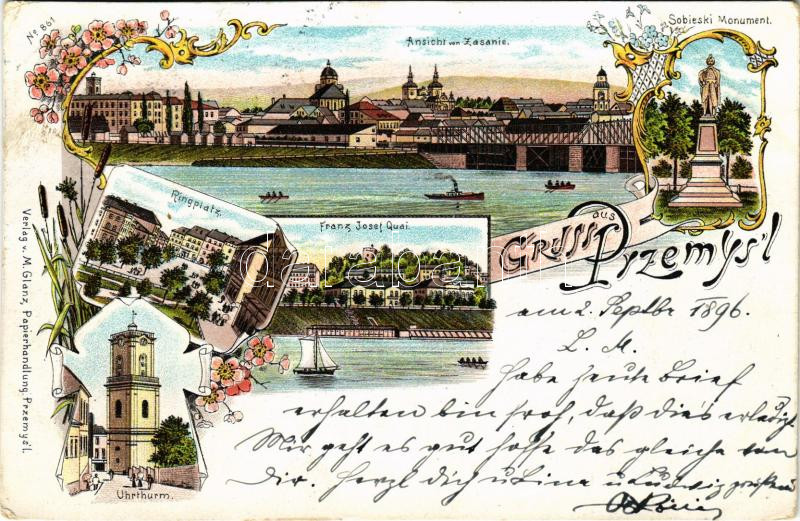 No 861
Sobieski Monument.
Ansicht von Zasanie.
Ringplatz.
Franz Josef Quai.
Gruss aus Przemyśl
am 2. Septbr 1896.
L. M.
Habe heute Brief
erhalten bin froh, daß dies erledigt
Mir geht es gut hoffe das gleiche von
Dir. Herzl dich u Lina u Ludwig grüßend
Uhrthurm.
Verlag v. M. Glanz, Papierhandlung, Przemyśl.
darabanth.com